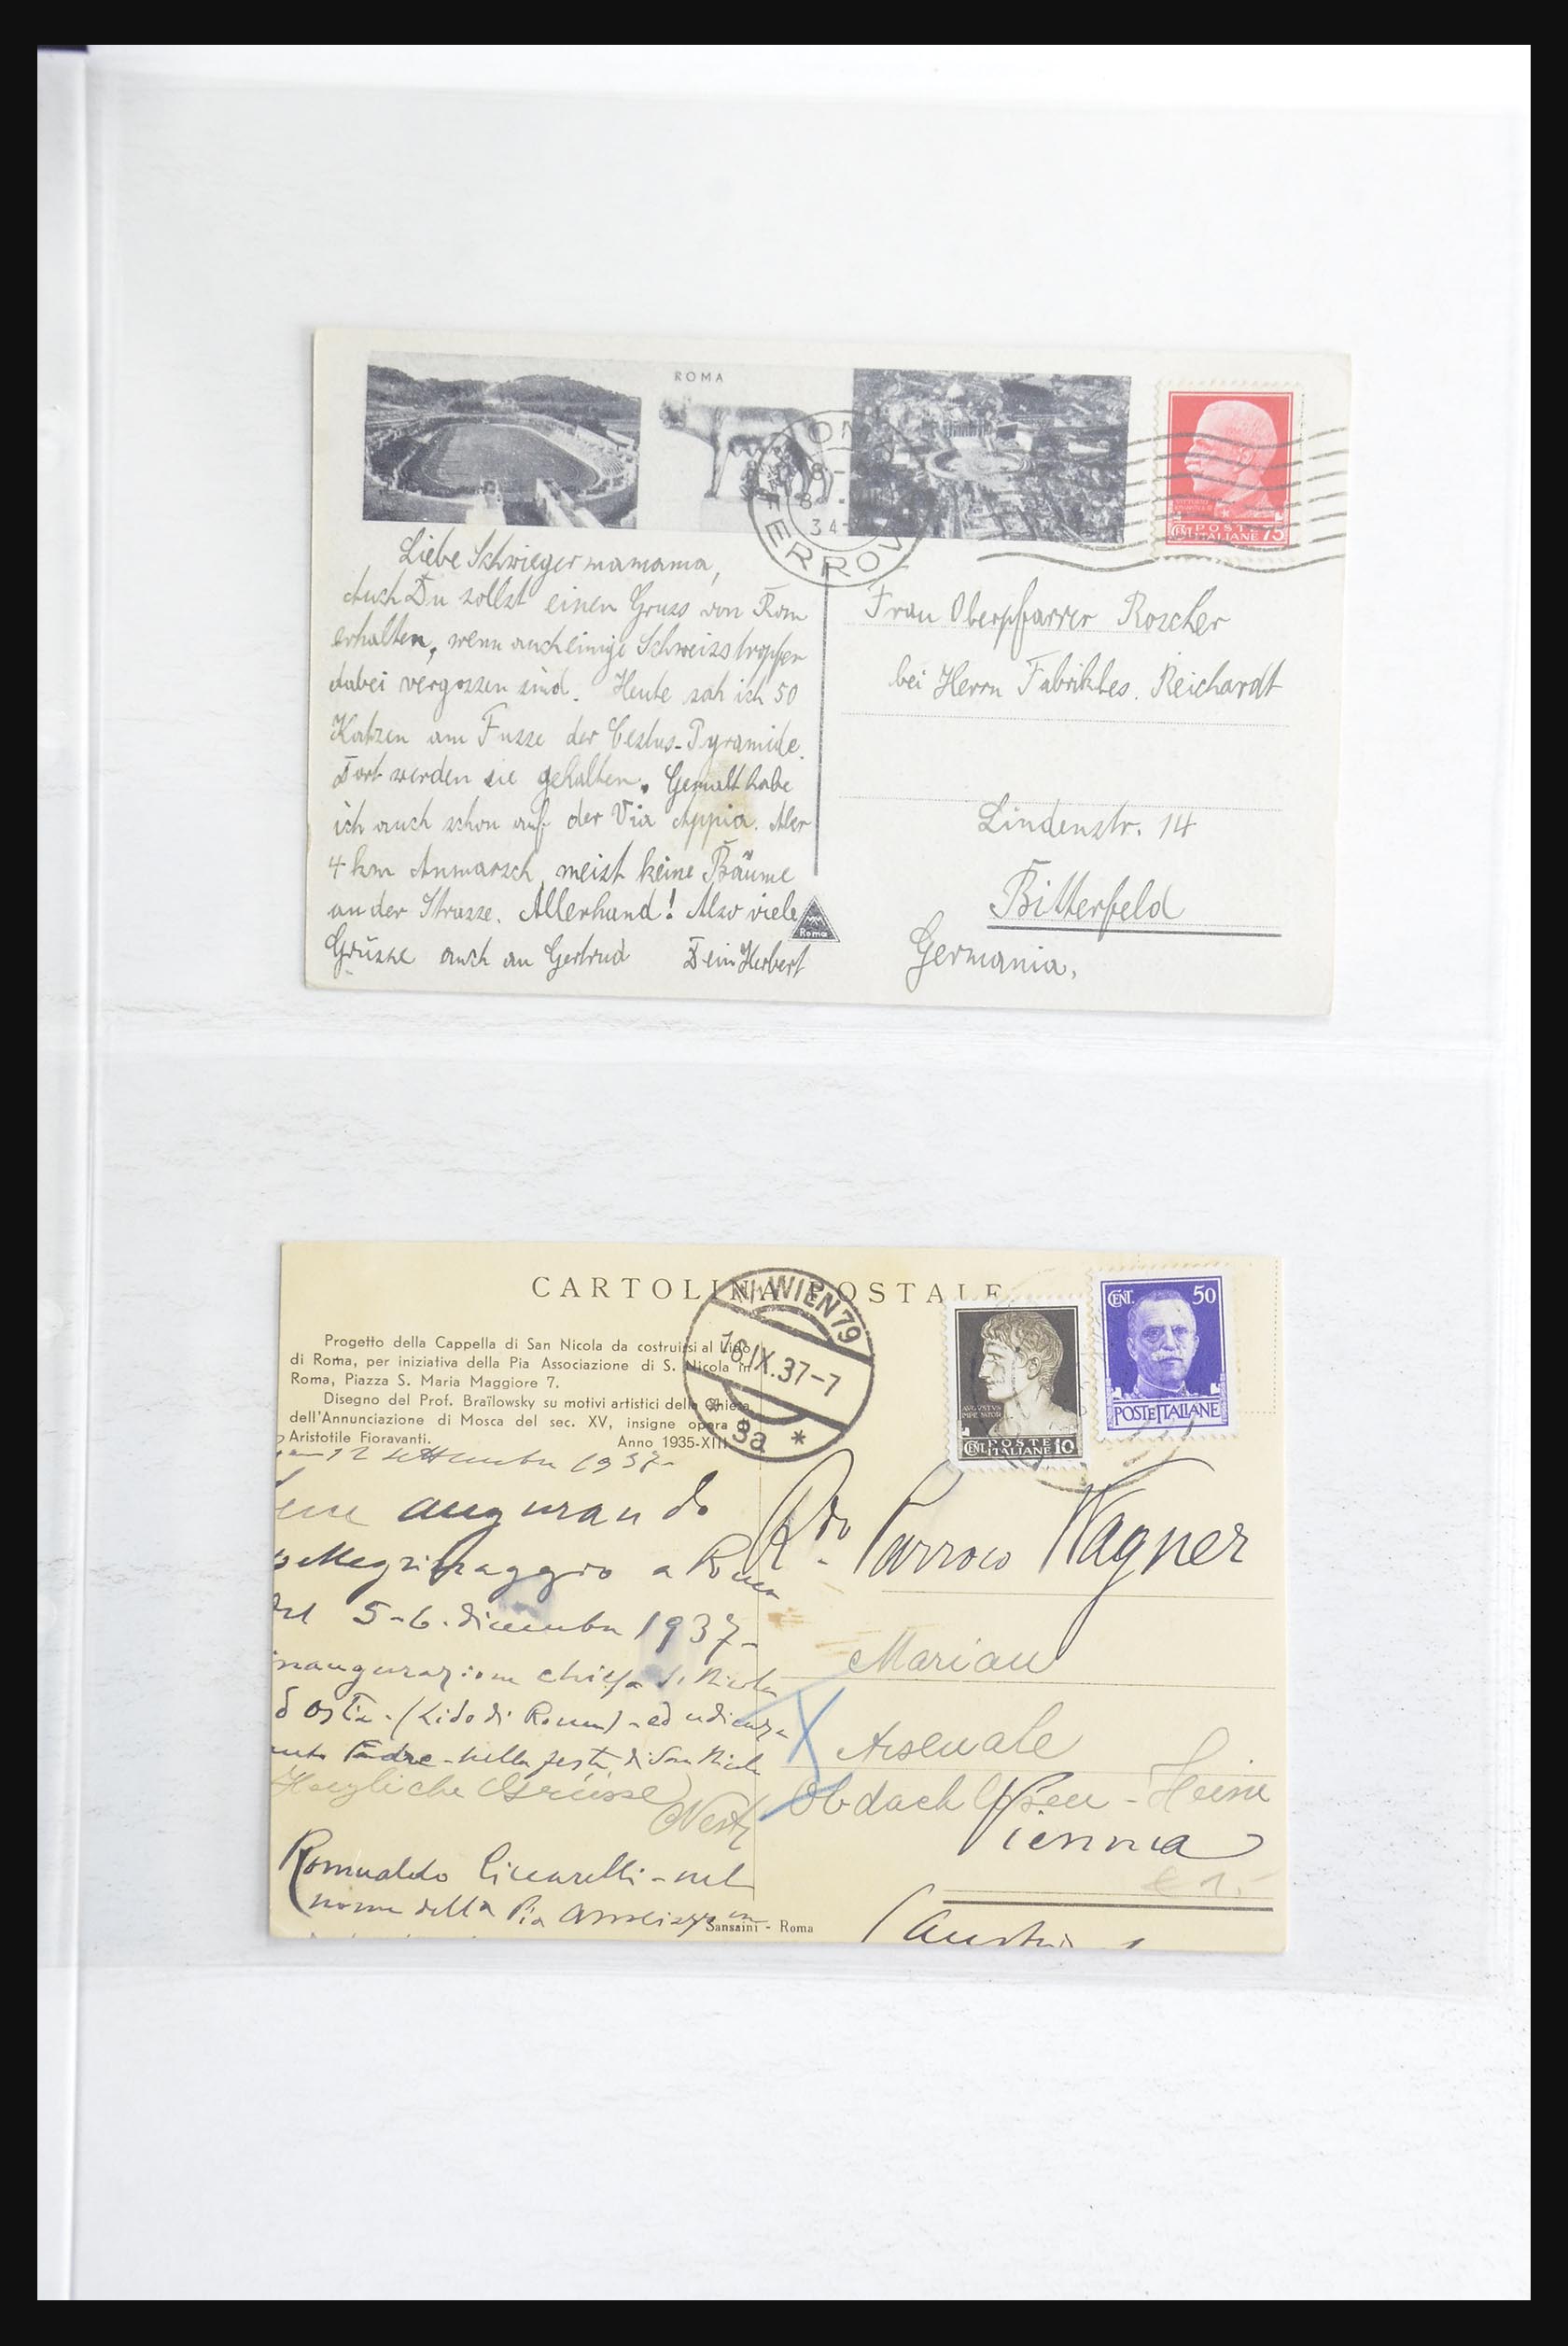 ROMA
POSTE
CENT. ITALIANE 75
Liebe Schwiegermamama,
Auch Du sollst einen Gruss von Rom
erhalten, wenn auch einige Schweisstropfen
dabei vergossen sind. Heute sah ich 50
Katzen am Fusse der Cestius-Pyramide.
Dort werden sie gehalten. Gemalt habe
ich auch schon auf der Via Appia. Aber
4 km Anmarsch, meist keine Bäume
an der Strasse. Allerhand! Also viele
Grüsse auch an Gertrud Dein Herbert
Roma
Frau Oberpfarrer Roscher
bei Herrn Fabrikbes. Reichardt
Lindenstr. 14
Bitterfeld
Germania.
CARTOLINA POSTALE
Progetto della Cappella di San Nicola da costruirsi al Lido
di Roma, per iniziativa della Pia Associazione di S. Nicola in
Roma, Piazza S. Maria Maggiore 7.
Disegno del Prof. Braïlowsky su motivi artistici della Chiesa
dell'Annunciazione di Mosca del sec. XV, insigne opera di
Aristotile Fioravanti. Anno 1935-XIII
WIEN 79
16.IX.37-7
3a *
AUGUSTUS
IMPERATOR
POSTE
CENT. ITALIANE 10
CENT. 50
POSTE ITALIANE
12 settembre 1937-
augurando
pellegrinaggio a Roma
del 5-6. dicembre 1937-
inaugurazione chiesa S. Nicola
Ostia-(Lido di Roma)-ed udienza
Padre-nella festa di San Nicola
Herzliche Grüsse
Romualdo Ciccarelli-nel
nome della Pia Associazione
Sansaini - Roma
Rdo Parroco Wagner
Marian
Arsenale
Obdach Wien - Heim
Vienna
€ 1.-
(Austria)